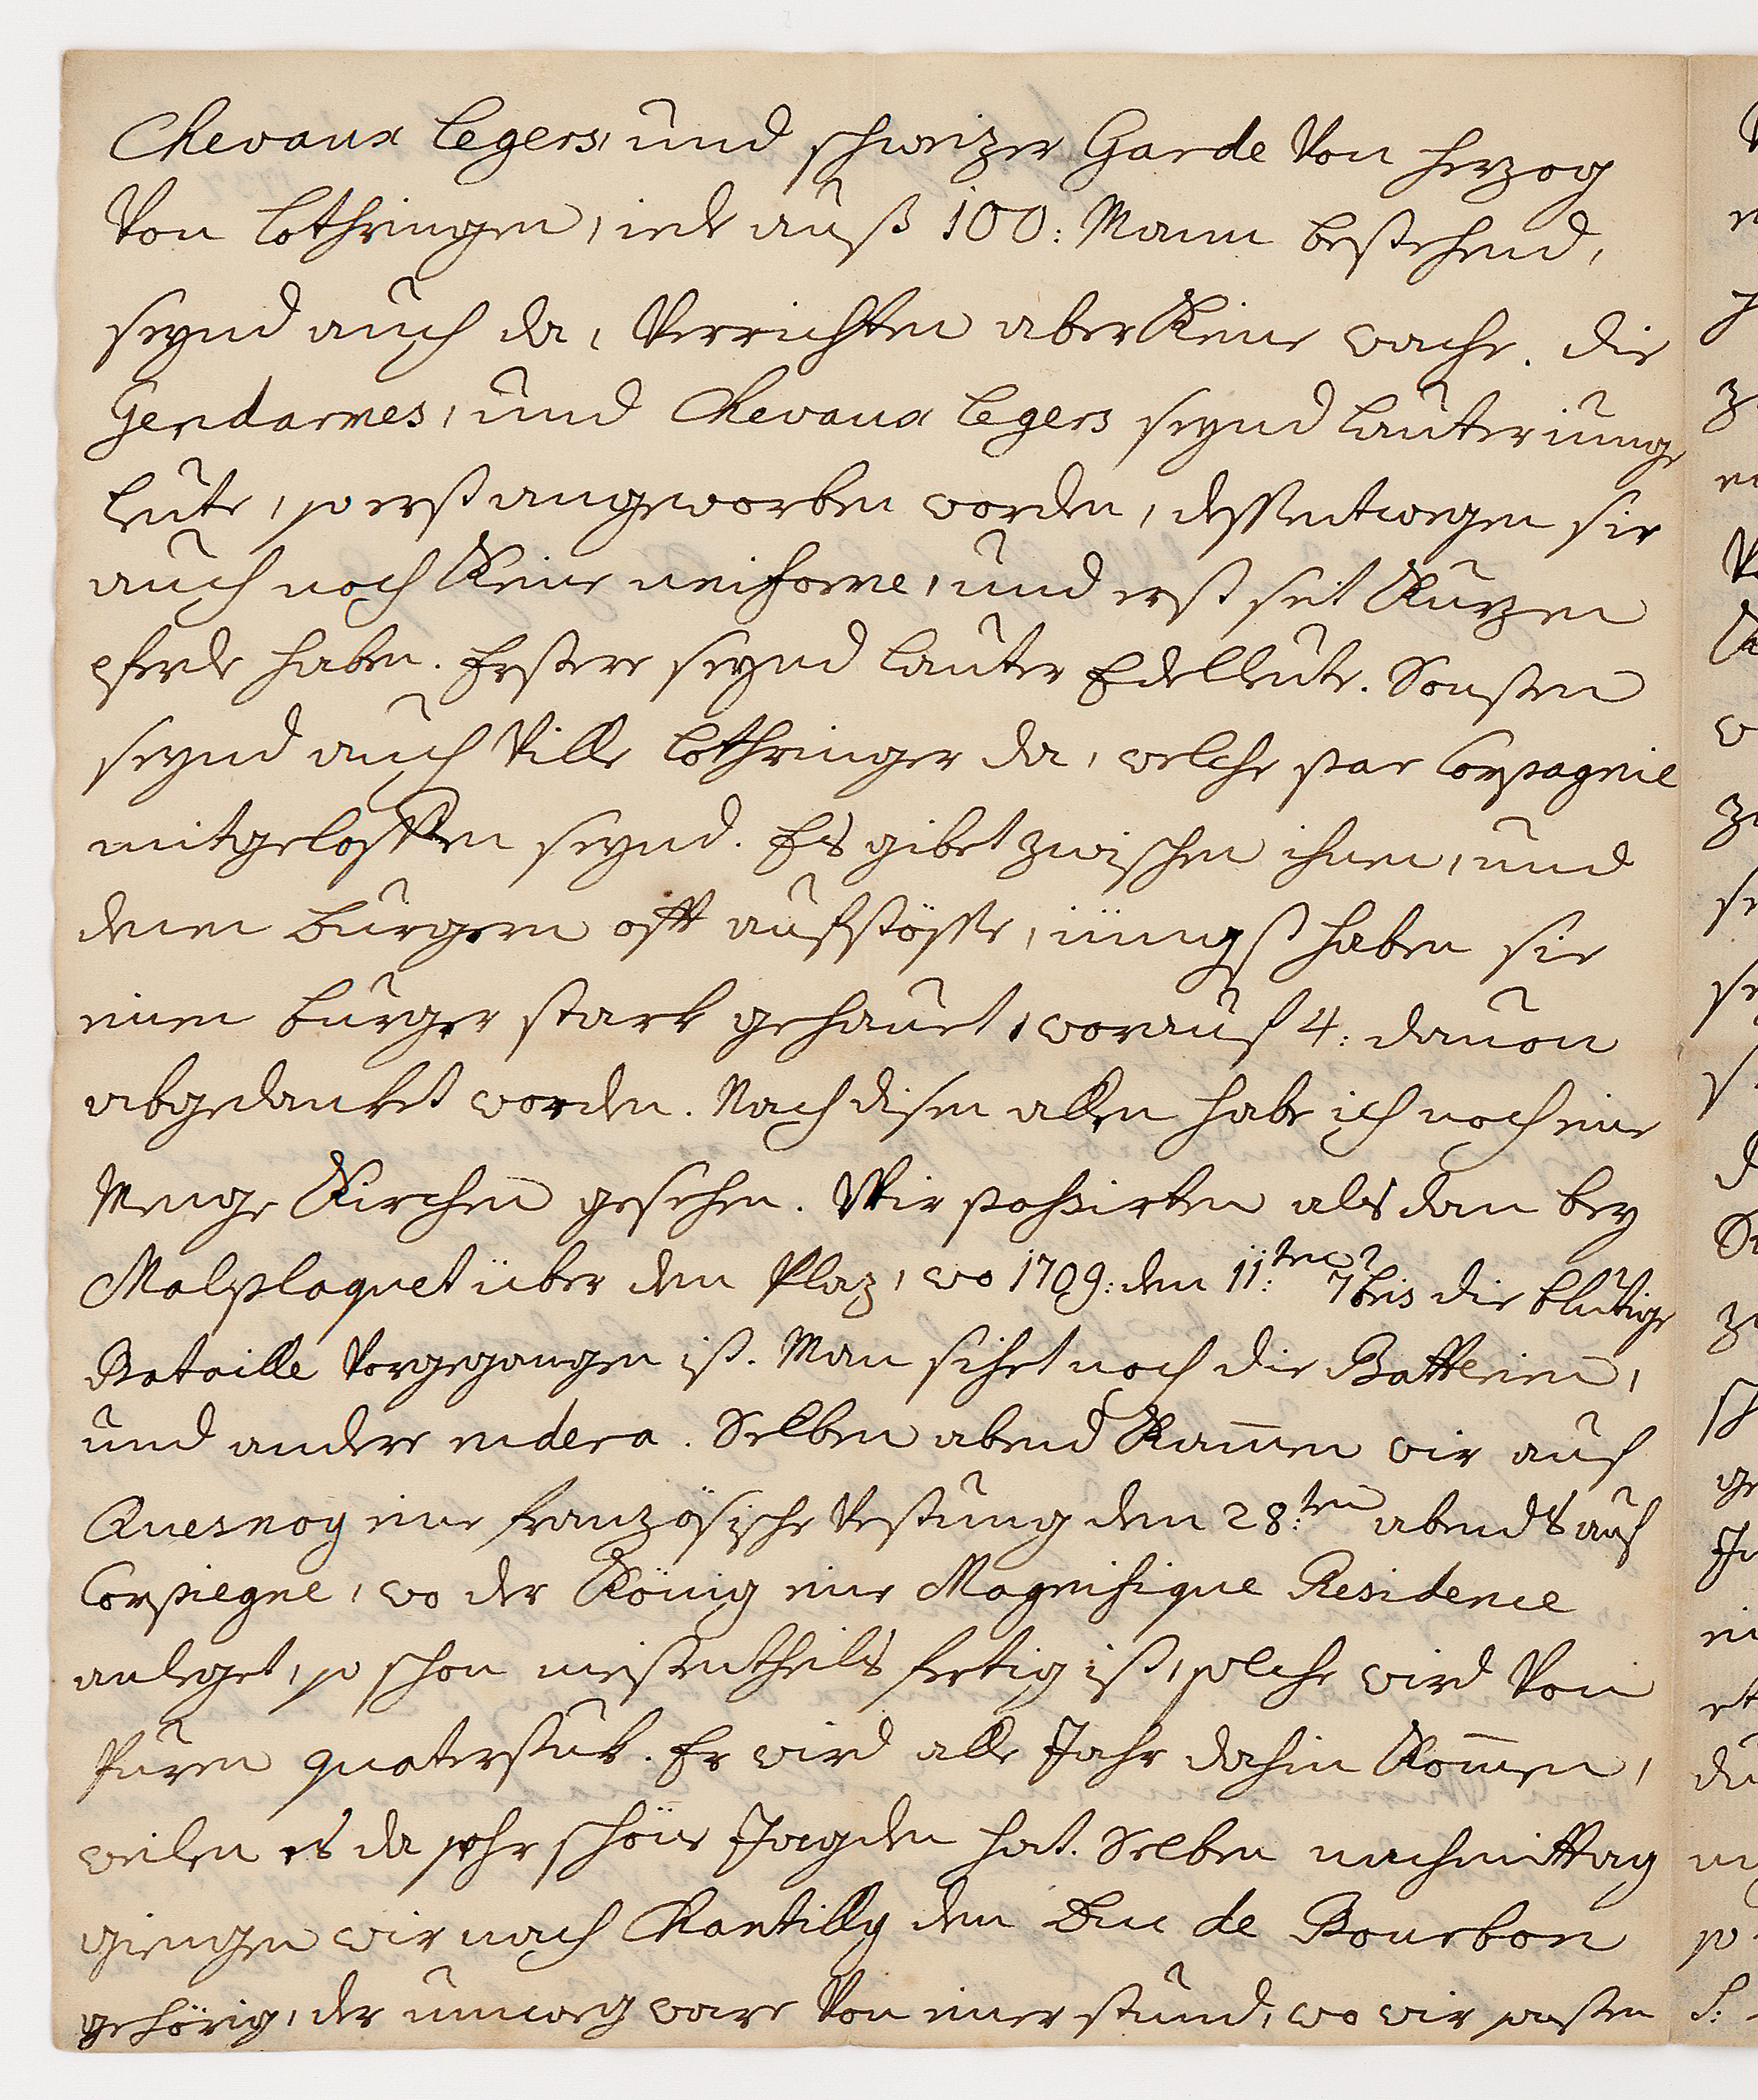 Chevaux legers, und schweizer Garde Von herzog
Von lothringen, iede auß 100: Mann bestehend,
seynd auch da, Verrichten aber Keine wache. die
Gendarmes, und Chevaux legers seynd lauter iunge
leute, so erst angeworben worden, dessentwegen sie
auch noch Keine uniforme, und erst seit Kurzen
pferde haben. Erstere seynd lauter Edelleute. Sonsten
seynd auch Ville lothringer da, welche par Compagnie
mitgeloffen seynd. Es gibet zwischen ihnen, und
denen burgern offt aufstösse, iüngst haben sie
einen burger stark gehauet, worauf 4: dauon
abgedanket worden. Nach disen allen habe ich noch eine
Menge Kirchen gesehen. Wir passirten als dan bey
Malplaquet über den Plaz, wo 1709: den 11:ten 7bris die blutige
Bataille Vorgegangen ist. Man sihet noch die Batterien,
und andere rudera. Selben abend Kam̄en wir auf
Quesnoy eine französische Vestung den 28:ten abends auf
Compiegne, wo der König eine Magnifique Residence
anleget, so schon meistentheils fertig ist, solche wird Von
puren quaterstuk. Er wird alle Jahr dahin Kom̄en,
weilen es da sehr schöne Jagden hat. Selben nachmittag
giengen wir nach Chantilly dem Duc de Bourbon
gehörig, der umweg ware Von einer stund, wo wir